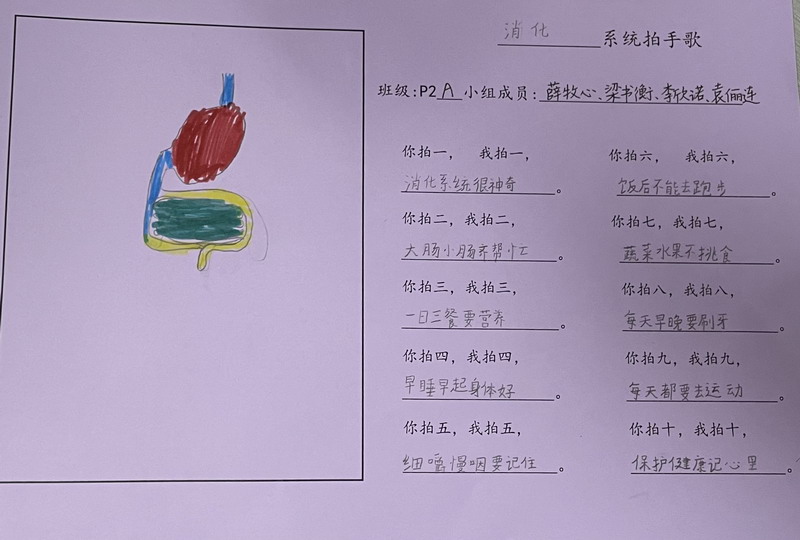 消化系统拍手歌
班级:P2A 小组成员:薛牧心、梁书衡、李欣诺、袁俪连
你拍一, 我拍一,
消化系统很神奇。
你拍二,我拍二,
大肠小肠齐帮忙。
你拍三,我拍三,
一日三餐要营养。
你拍四,我拍四,
早睡早起身体好。
你拍五,我拍五,
细嚼慢咽要记住。
你拍六, 我拍六,
饭后不能去跑步。
你拍七,我拍七,
蔬菜水果不挑食。
你拍八,我拍八,
每天早晚要刷牙。
你拍九,我拍九,
每天都要去运动。
你拍十,我拍十,
保护健康记心里。